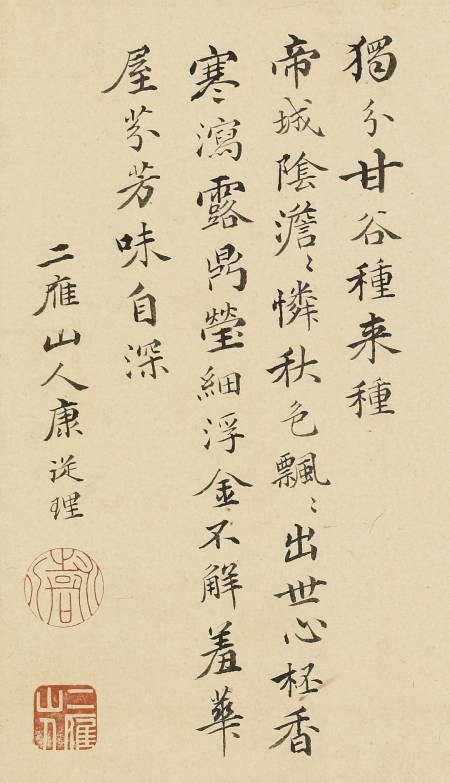 獨分甘谷種来種
帝城陰澹〻憐秋色飄〻出世心柸香
寒瀉露鼎瑩細浮金不解羞華
屋芬芳味自深
二雁山人康從理
二雁山人